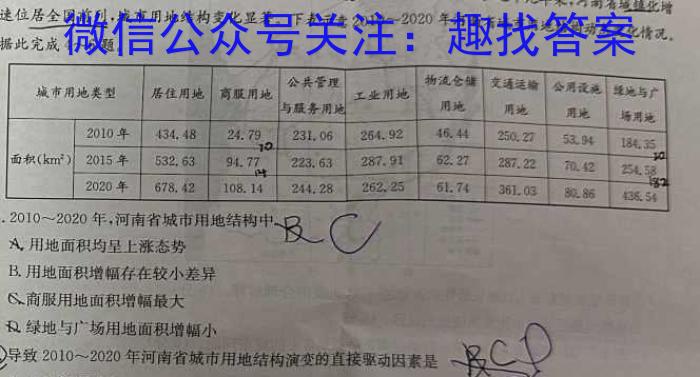 速位居全国前列，城市用地结构变化显著。
微信公众号关注：趣找答案
据此完成
城市用地类型 居住用地 商服用地 公共管理与服务用地 工业用地 物流仓储用地 交通运输用地 公用设施用地 绿地与广场用地
面积(km²)
2010年 434.48 24.79 231.06 264.92 46.44 250.27 53.94 184.35
2015年 532.63 94.77 223.63 287.91 62.27 287.22 70.42 254.58
2020年 678.42 108.14 244.28 262.25 61.74 361.03 80.86 436.54
.2010～2020年,河南省城市用地结构中 B C
A.用地面积均呈上涨态势
B.用地面积增幅存在较小差异
C.商服用地面积增幅最大
D.绿地与广场用地面积增幅小
导致2010～2020年河南省城市用地结构演变的直接驱动因素是 B C D